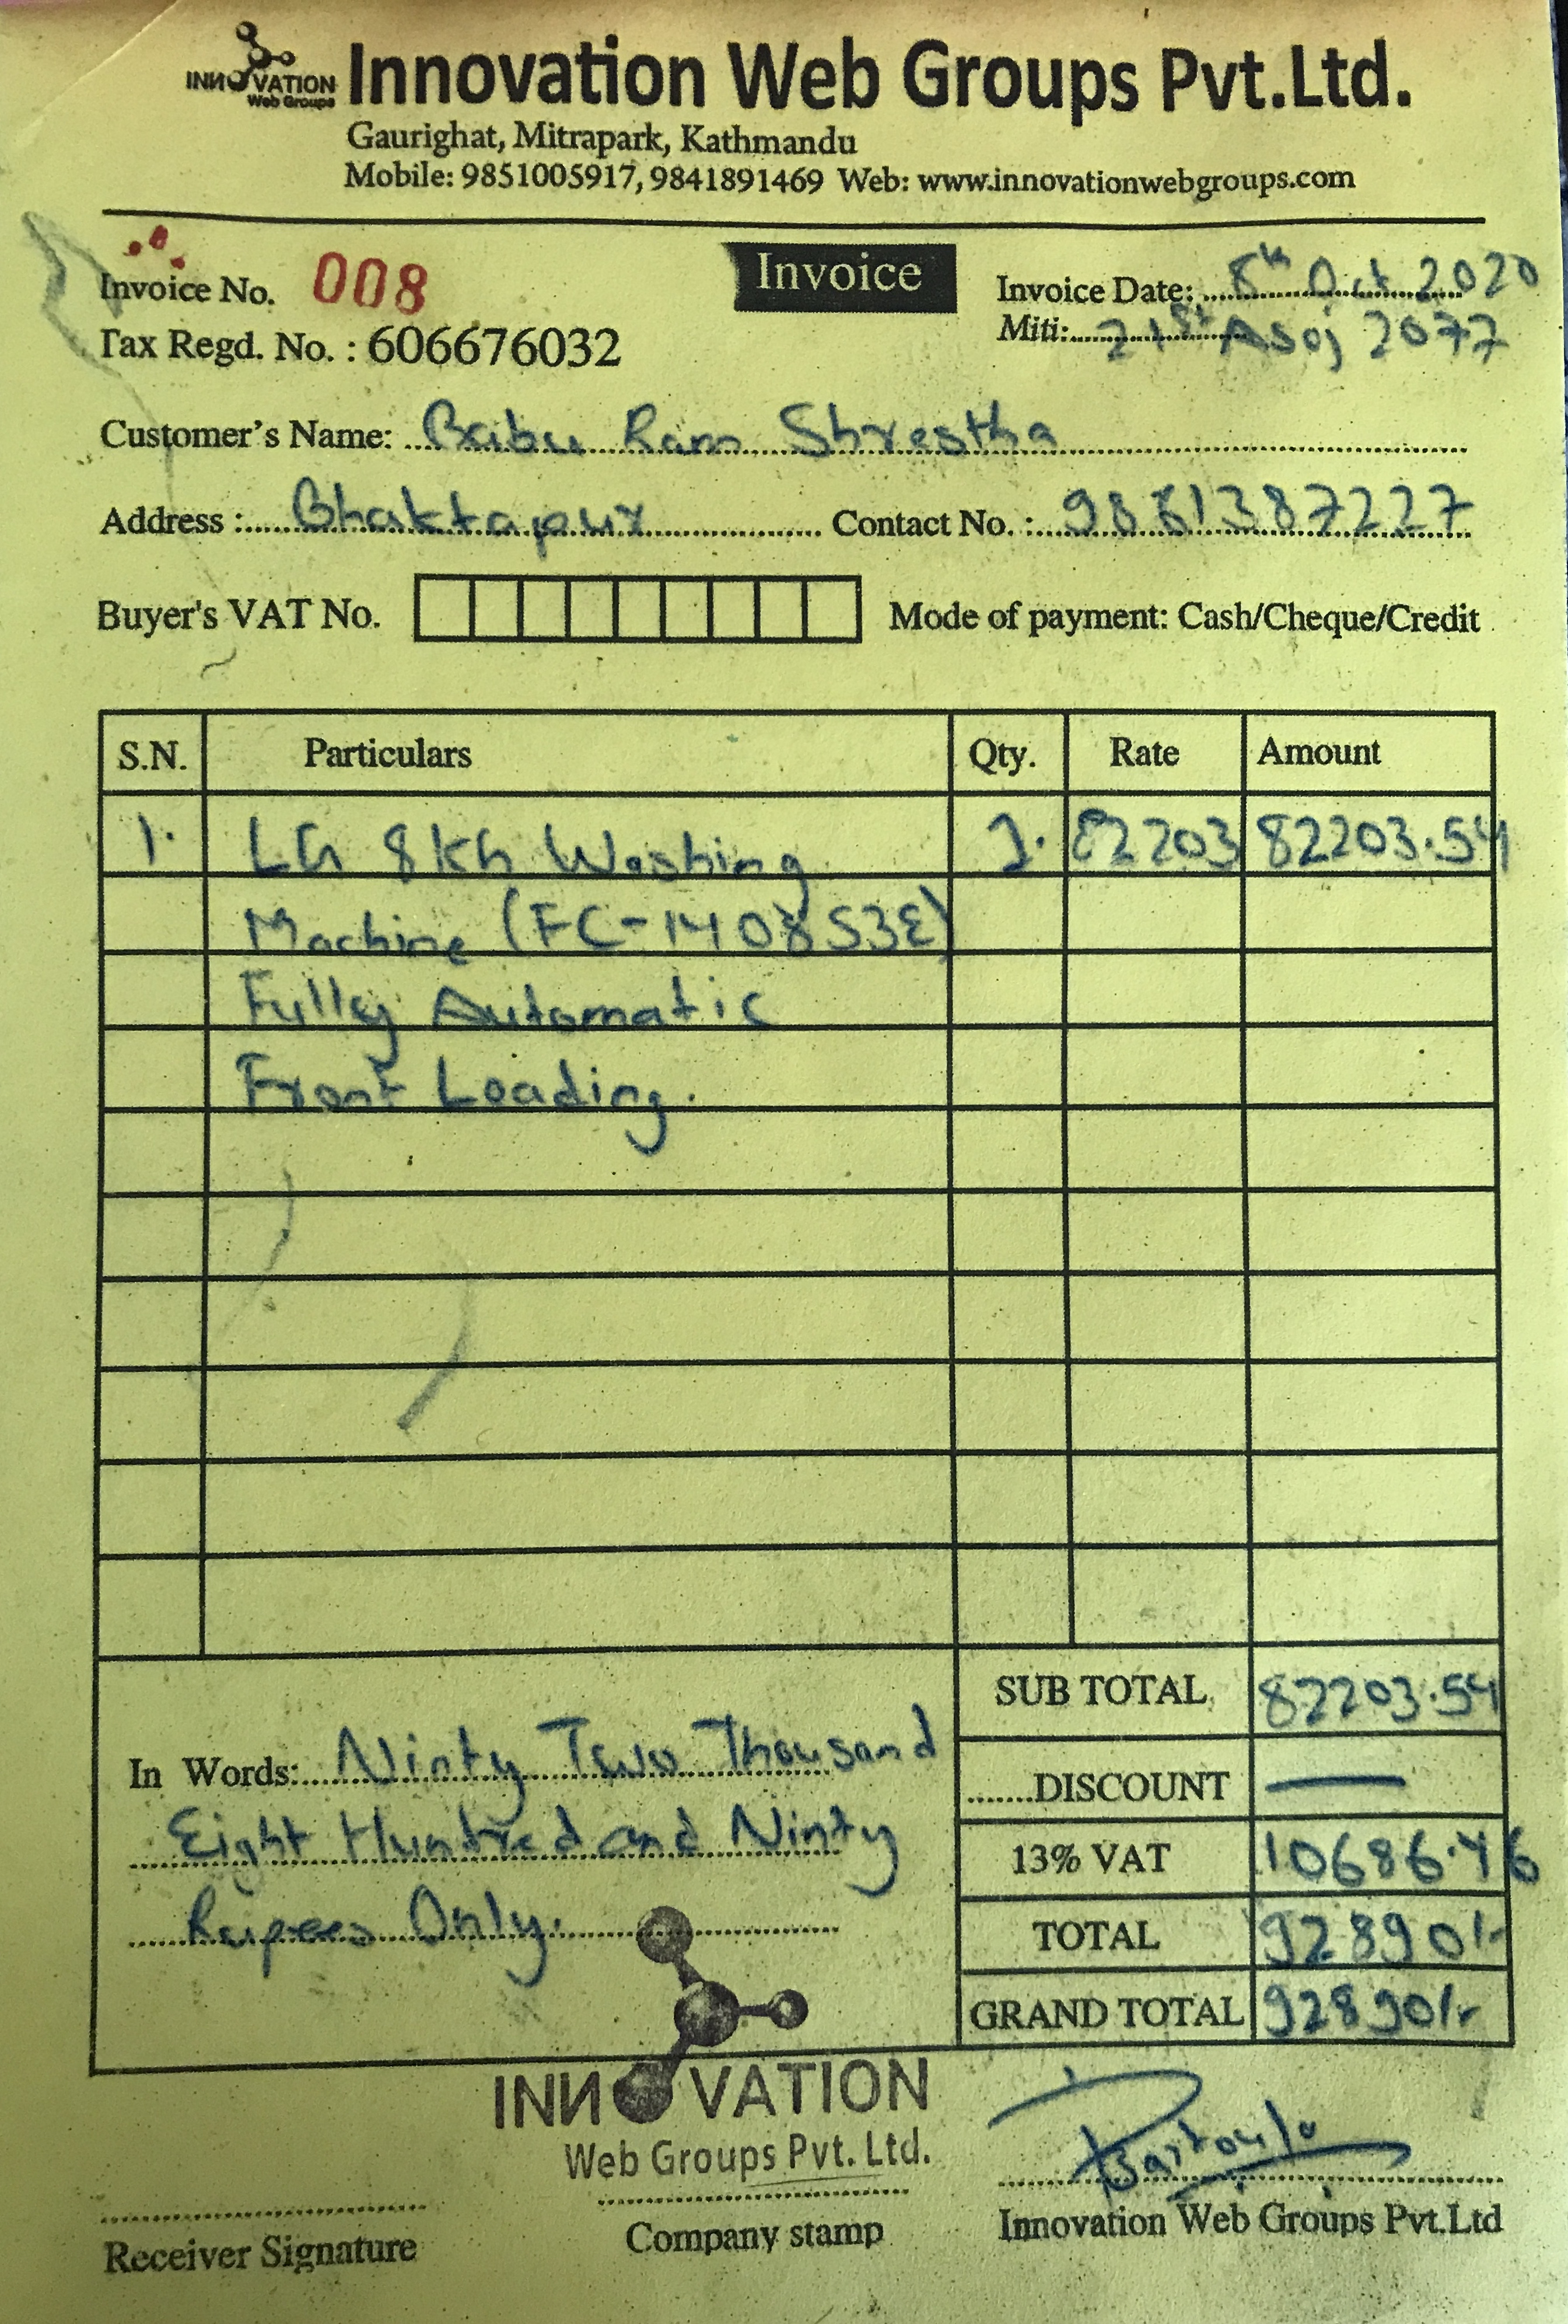 INNOVATION
Web Groups
Innovation Web Groups Pvt.Ltd.
Gaurighat, Mitrapark, Kathmandu
Mobile: 9851005917, 9841891469 Web: www.innovationwebgroups.com
Invoice No. 008
Invoice
Invoice Date: Oct 2020
Tax Regd. No. : 606676032
Miti: 21st Asoj 2077
Customer's Name: Babu Ram Shrestha
Address : Bhaktapur Contact No. :
Buyer's VAT No. Mode of payment: Cash/Cheque/Credit
S.N. Particulars Qty. Rate Amount
1. LG 8KG Washing 1. 82203 82203.54
Machine (FC-1408S3E)
Fully Automatic
Front Loading.
SUB TOTAL 82203.54
In Words: Ninty Two Thousand
.......DISCOUNT —
Eight Hundred and Ninty
13% VAT 10686.46
Rupees Only.
TOTAL 92890/-
GRAND TOTAL 92890/-
INNOVATION
Web Groups Pvt. Ltd.
Receiver Signature
Company stamp
Innovation Web Groups Pvt.Ltd